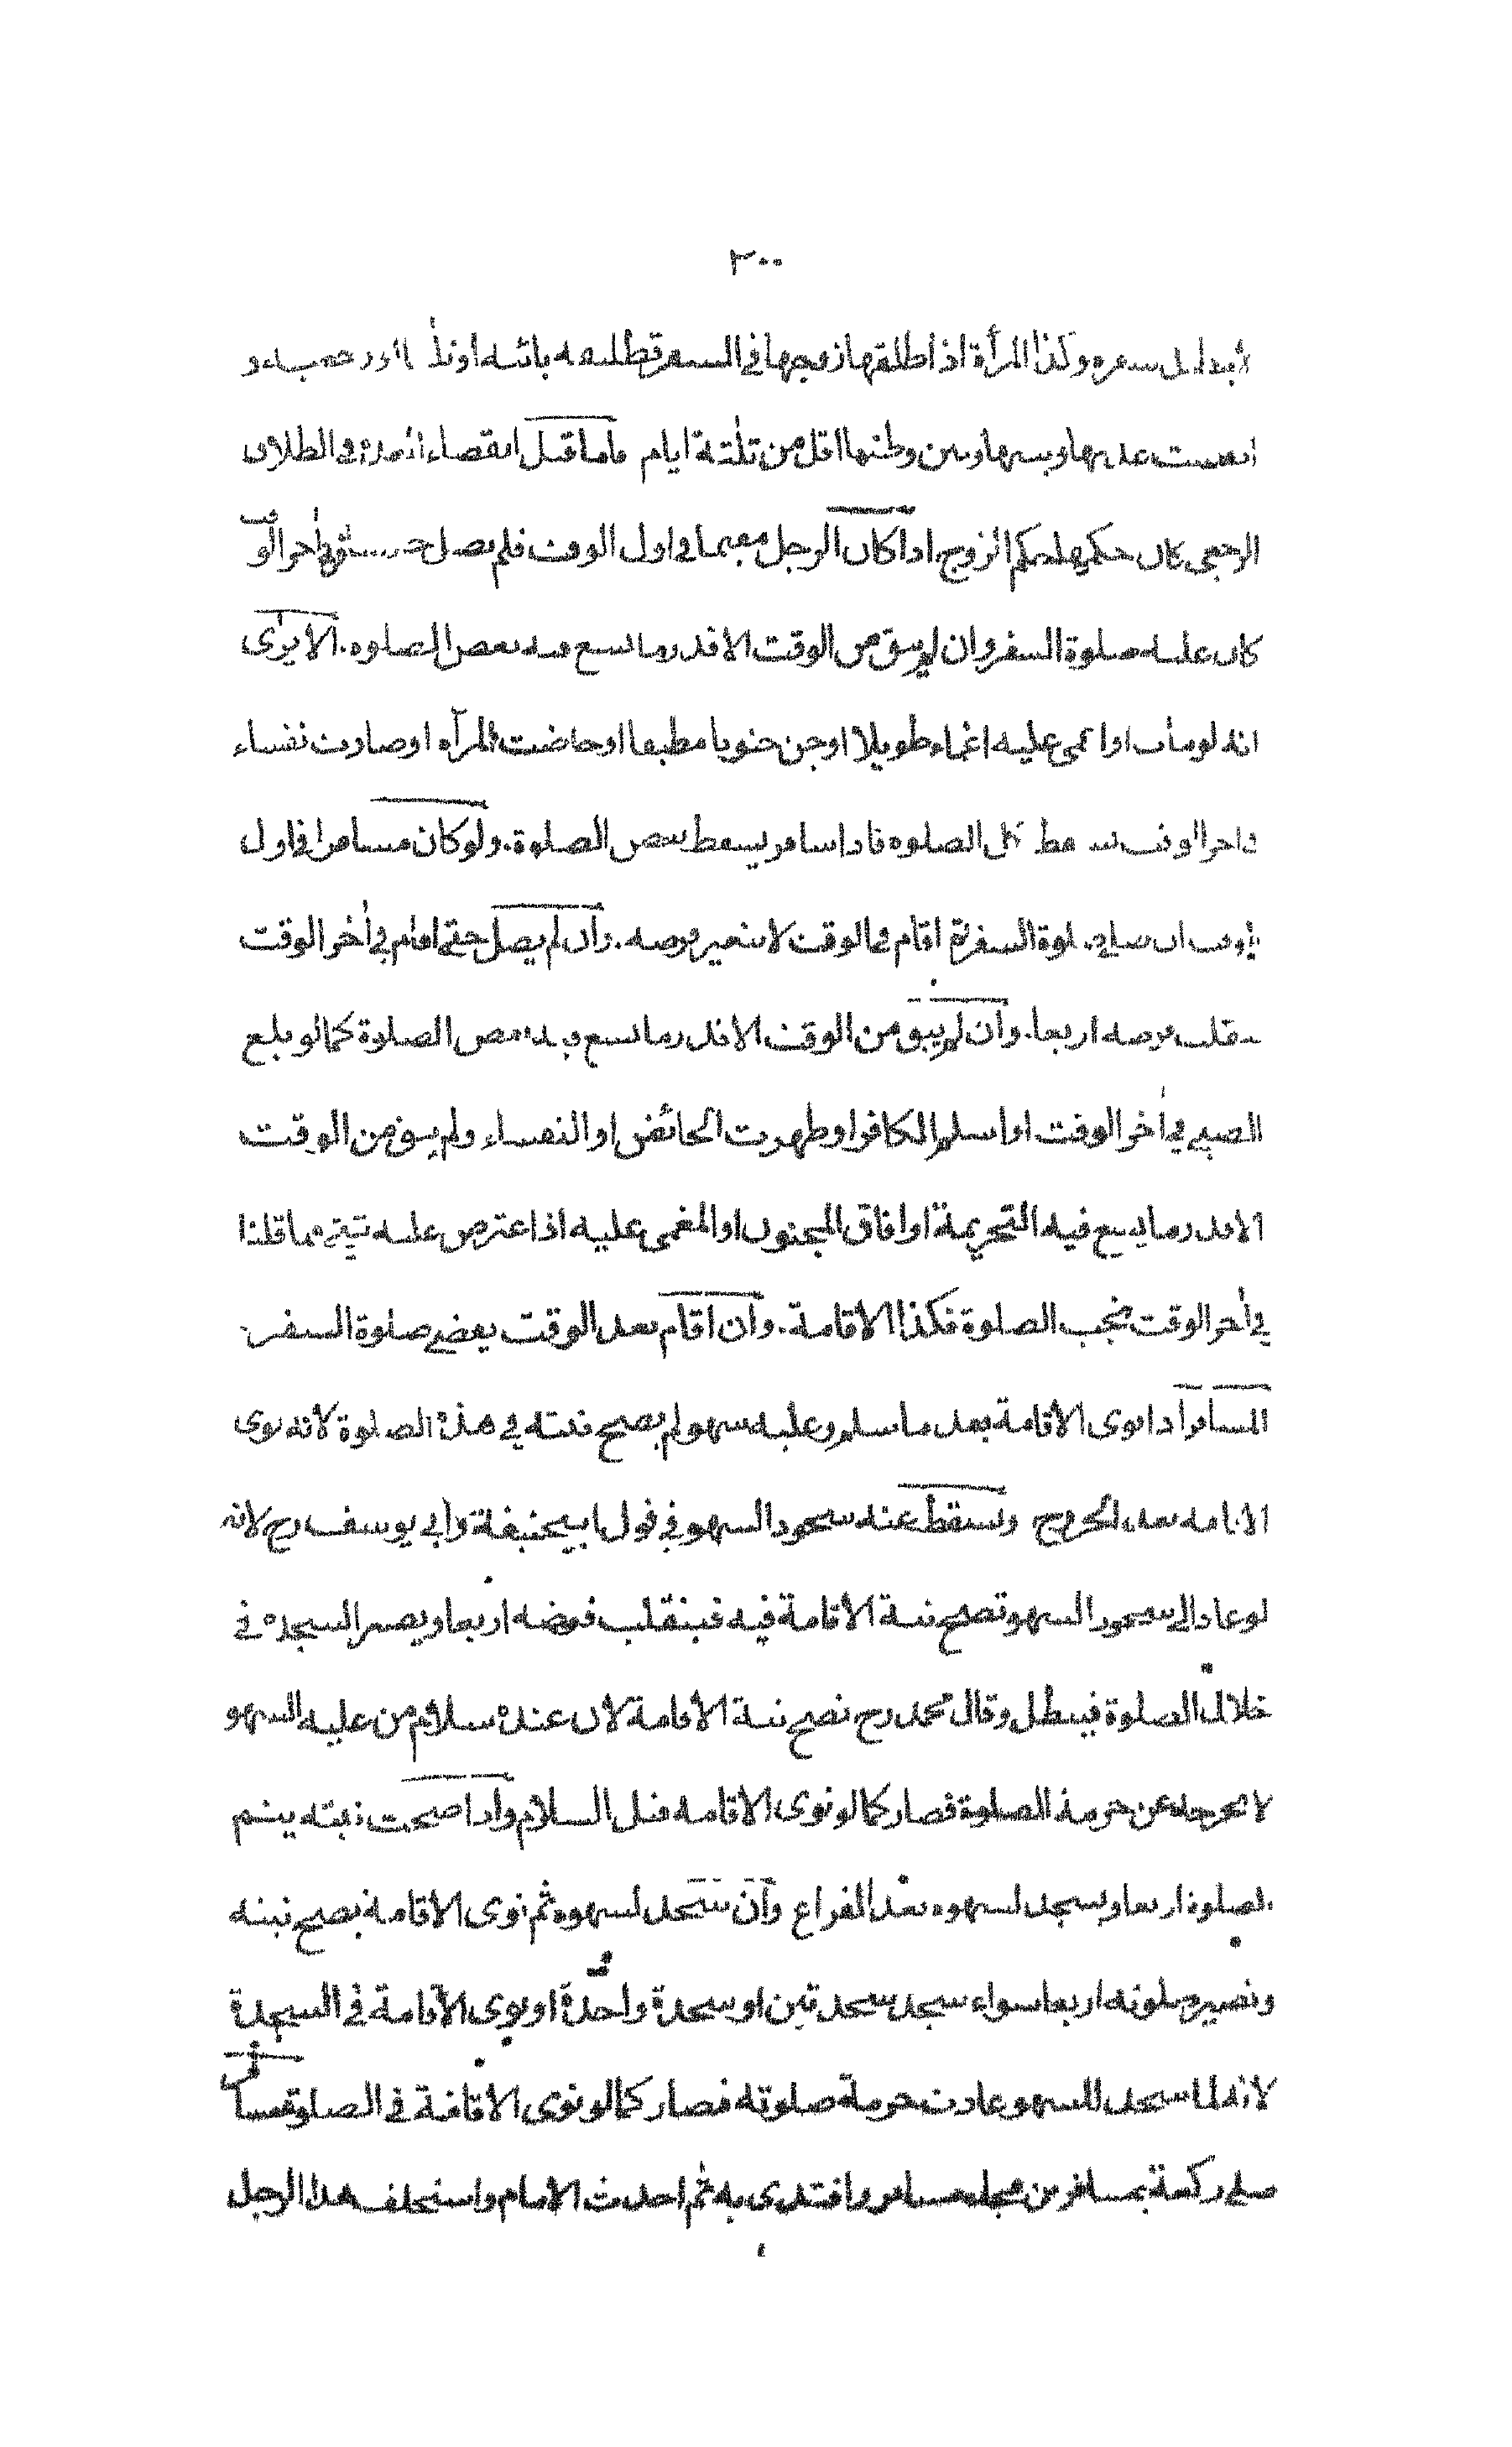 ٣٠٠
وكذا المرأة اذا طلقها زوجها في السفر تطليقة بائنة او ثلثا
وبينها وبين وطنها اقل من ثلثة ايام فاما قبل انقضاء العدة في الطلاق
الرجعي كان حكمها حكم الزوج اذا كان الرجل مقيما في اول الوقت فلم يصل حتى سافر في اٰخر الوقت
كان عليه صلوة السفر وان لم يبق من الوقت الا قدر ما يسع فيه بعض الصلوة. الا يرى
انه لو مات او اغمى عليه اغماء طويلا او جن جنونا مطبقا او حاضت المرأة او صارت نفساء
في اٰخر الوقت يسقط كل الصلوة فاذا سافر يسقط بعض الصلوة. ولو كان مسافرا في اول
الوقت ان صلى صلوة السفر ثم اقام في الوقت لا يتغير فرضه. وان لم يصل حتى اقام في اٰخر الوقت
ينقلب فرضه اربعا. وان لم يبق من الوقت الا قدر ما يسع فيه بعض الصلوة كما لو بلغ
الصبي في اٰخر الوقت او اسلم الكافر او طهرت الحائض او النفساء ولم يبق من الوقت
الا قدر ما يسع فيه التحريمة او افاق المجنون او المغمى عليه اذا اعترض عليه شيئ مما قلنا
في اٰخر الوقت تجب الصلوة فكذا الاقامة. وان اقام بعد الوقت يقضي صلوة السفر
المسافر اذا نوى الاقامة بعد ما سلم وعليه سهو لم يصح نيته في هذه الصلوة لانه نوى
الاقامة بعد الخروج ويسقط عنه سجود السهو في قول ابيحنيفة وابي يوسف رح لانه
لو عاد الى سجود السهو تصح نية الاقامة فيه فينقلب فرضه اربعا ويصير السجدة في
خلال الصلوة فيبطل وقال محمد رح تصح نية الاقامة لان عنده سلام من عليه السهو
لا يخرجه عن حرمة الصلوة فصار كما لو نوى الاقامة قبل السلام واذا صحت نيته يتم
الصلوة اربعا ويسجد لسهوه بعد الفراغ وان سجد لسهوه ثم نوى الاقامة يصح نيته
ويصير صلوته اربعا سواء سجد سجدتين او سجدة واحدة او نوى الاقامة في السجدة
لانه لما سجد للسهو عادت حرمة صلوته فصار كما لو نوى الاقامة في الصلوة مسافر
صلى ركعة بمسافر من فجاء مسافر واقتدى به ثم احدث الامام واستخلف هذا الرجل